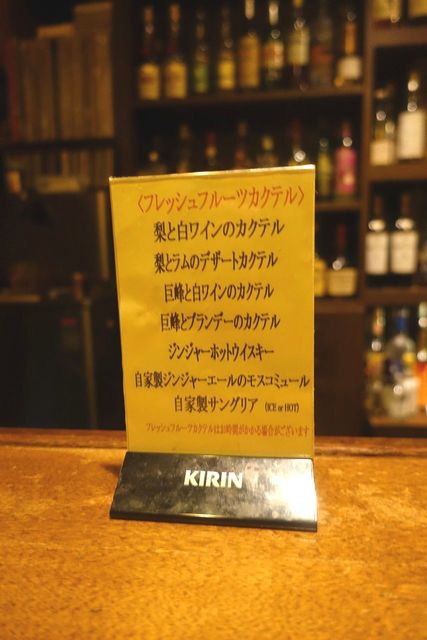 〈フレッシュフルーツカクテル〉
梨と白ワインのカクテル
梨とラムのデザートカクテル
巨峰と白ワインのカクテル
巨峰とブランデーのカクテル
ジンジャーホットウイスキー
自家製ジンジャーエールのモスコミュール
自家製サングリア (ICE or HOT)
フレッシュフルーツカクテルはお時間がかかる場合がございます
KIRIN